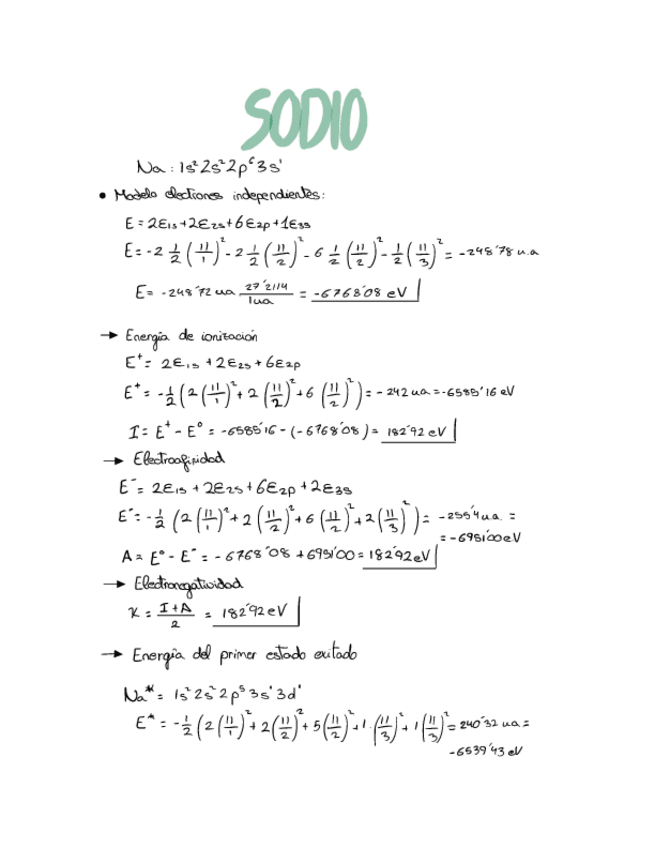 SODIO
Na : 1s² 2s² 2p⁶ 3s¹
• Modelo electrones independientes:
E = 2ε1s + 2ε2s + 6ε2p + 1ε3s
E = -2 1/2 (11/1)² - 2 1/2 (11/2)² - 6 1/2 (11/2)² - 1/2 (11/3)² = -248'78 u.a
E = -248'72 ua 27'2114/1ua = -6768'08 eV
→ Energía de ionización
E⁺ = 2ε1s + 2ε2s + 6ε2p
E⁺ = -1/2 (2 (11/1)² + 2 (11/2)² + 6 (11/2)²) = -242 ua = -6585'16 eV
I = E⁺ - E⁰ = -6585'16 - (-6768'08) = 182'92 eV
→ Electroafinidad
E⁻ = 2ε1s + 2ε2s + 6ε2p + 2ε3s
E⁻ = -1/2 (2 (11/1)² + 2 (11/2)² + 6 (11/2)² + 2 (11/3)²) = -255'4 u.a. =
= -6951'00 eV
A = E⁰ - E⁻ = -6768'08 + 6951'00 = 182'92 eV
→ Electronegatividad
X = I+A/2 = 182'92 eV
→ Energía del primer estado exitado
Na* = 1s² 2s² 2p⁵ 3s¹ 3d¹
E* = -1/2 (2 (11/1)² + 2 (11/2)² + 5 (11/2)² + 1·(11/3)² + 1 (11/3)² = 240'32 ua =
-6539'43 eV